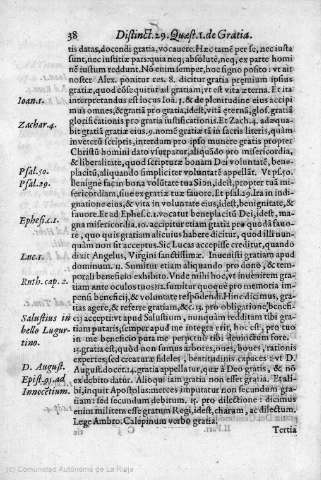 38 Distinct. 29. Quæst. 1. de Gratia.
tis datas, docendi gratia, vocauere. Hæc tamè per se, nec iusta
sunt, nec iustitiæ paria: quia neq; absolutè, neq; ex parte homi
nò iustum reddunt. Nò enim semper, hoc signo posito: vt ait
noster Alex. ponitur ces. 8. dicitur gratia premium ipsius
gratiæ, quod cõsequitur ad gratiam, vt est vita æterna. Et ita
Ioan. 1.
interpretandus est locus Ioã. 1. & de plenitudine eius accipi
mus omnes, & gratiã pro gratia, idest, vitã eternã, glos. gratiã
Zachar. 4.
glorificationis pro gratia iustificationis. Et Zach. 4. adæqua-
bit gratiã gratiæ eius. 9. nomẽ gratiæ tã in sacris literis, quàm
in veterũ scriptis, interdum pro ipso munere gratis propter
Christũ homini dato vsurpatur, aliquãdo pro misericordia,
& liberalitate, quod scripturæ bonam Dei voluntatẽ, bene-
Psal. 50.
placitũ, aliquando simpliciter voluntatẽ appellãt. Vt ps. 50.
Psal. 29.
Benignè fac in bona volũtate tua Sion, idest, propter tuã mi-
sericordiam, siue ex gratia tua fauore. Et psal. 29. Ira in indi-
gnatione eius, & vita in voluntate eius, idest, benignitate, &
Ephes. c. 1.
fauore. Et ad Ephes. c. 1. vocatur beneplacitũ Dei, idest, mag-
na misericordia. 10. accipitur etiam gratia pro quodã fauo-
re, quo quis gratiam alicuius habere dicitur, quod illi nun-
Luc. 1.
quàm non sit acceptus. Sic Lucas accepisse creditur, quando
dixit Angelus, Virgini sanctissimæ. Inuenisti gratiam apud
dominum. 11. Sumitur etiam aliquando pro dono, & tem-
porali beneficio exhibito. Vnde mihi hoc, vt inuenirem gra-
Ruth. cap. 2.
tiam ante oculos tuos? 12. sumitur quoque pro memoria im-
pensi beneficij, & voluntate respõdendi. Hinc dicimus, gra-
tias agere, & referre gratiam, &c. 13. pro obligatione benefi-
Salustius in
cij acceptiue apud Salustium, nunquàm redditam tibi gra-
bello Iugur-
tiam putaris, semper apud me integra erit, hoc est, pro tuo
tino.
in me beneficio puta me perpetuò tibi deuinctum fore.
15. gratia est, quod non famus arbores, oues, boues, rationis
D. August.
expertes, sed creaturæ fideles, beatitudinis capaces. vt D.
Epist. 95. ad
August. docet. 14. gratia appellatur, quæ à Deo gratis, & nõ
Innocẽtium.
ex debito datur. Alioqui iam gratia non esset gratia. Et ali-
bi, inquit Apostolus: merces imputatur non secundum gra-
tiam: sed secundum debitum. 15. pro dilectione: dicimus
enim militem esse gratum Regi, idest, charum, ac dilectum.
Lege Ambro. Calepinum verbo gratia;
Tertia
(c) Comunidad Autónoma de La Rioja